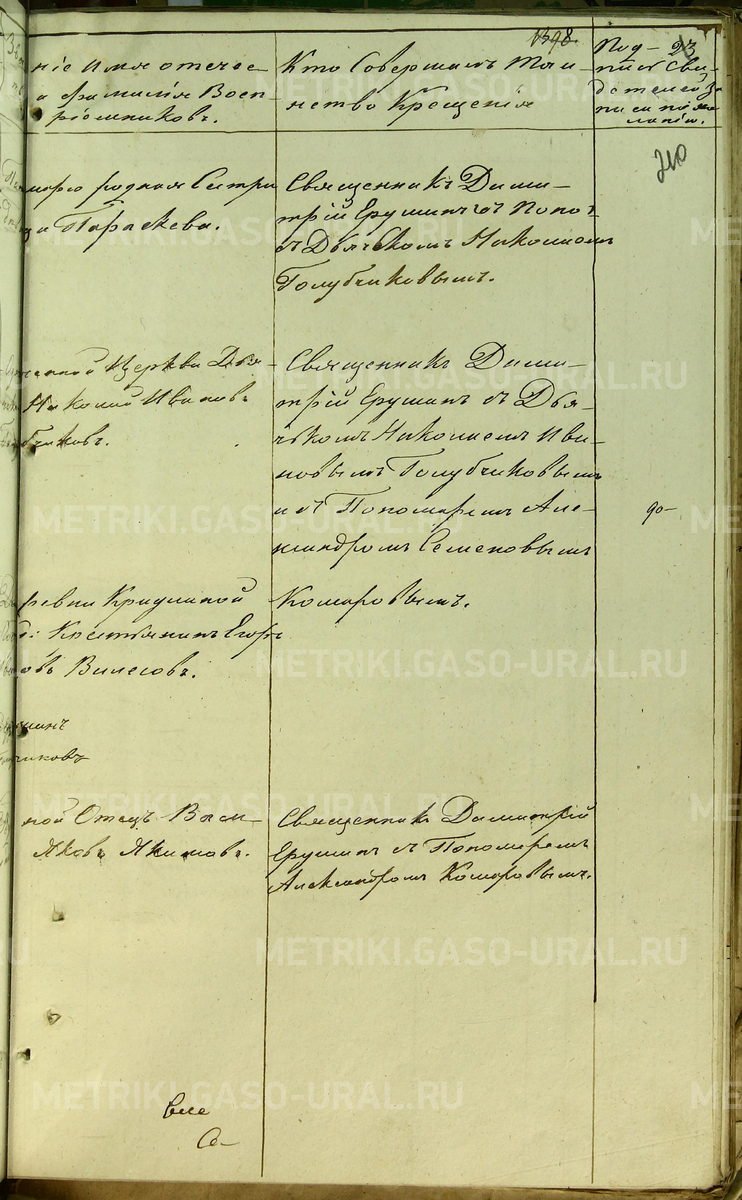 1398.
23
210
ніе имя отече-
а фамилія Восп-
ріемниковъ.
Кто Совершалъ Таи-
нство Крещенія
Под-
пись Сви-
детелей за
писи по же
ланію.
родная Сестри
ца Параскева.
Священникъ Дими-
трій Ерушинъ съ
Дьячкомъ Николаемъ
Голубчиковымъ.
Церкви Дья-
Николай Ивановъ
бчиковъ.
Священникъ Дими-
трій Ерушинъ съ Дья-
чкомъ Николаемъ Ива-
новымъ Голубчиковымъ
и съ Пономаремъ Але-
ксандромъ Семеновымъ
Комаровымъ.
ревни
Крестьянинъ Егоръ
овъ Вилесовъ.
шинъ
чиковъ
ной Отецъ Васи-
Яковъ Якимовъ.
Священникъ Димитрій
Ерушинъ съ Пономаремъ
Александромъ Комаровымъ.
METRIKI.GASO-URAL.RU